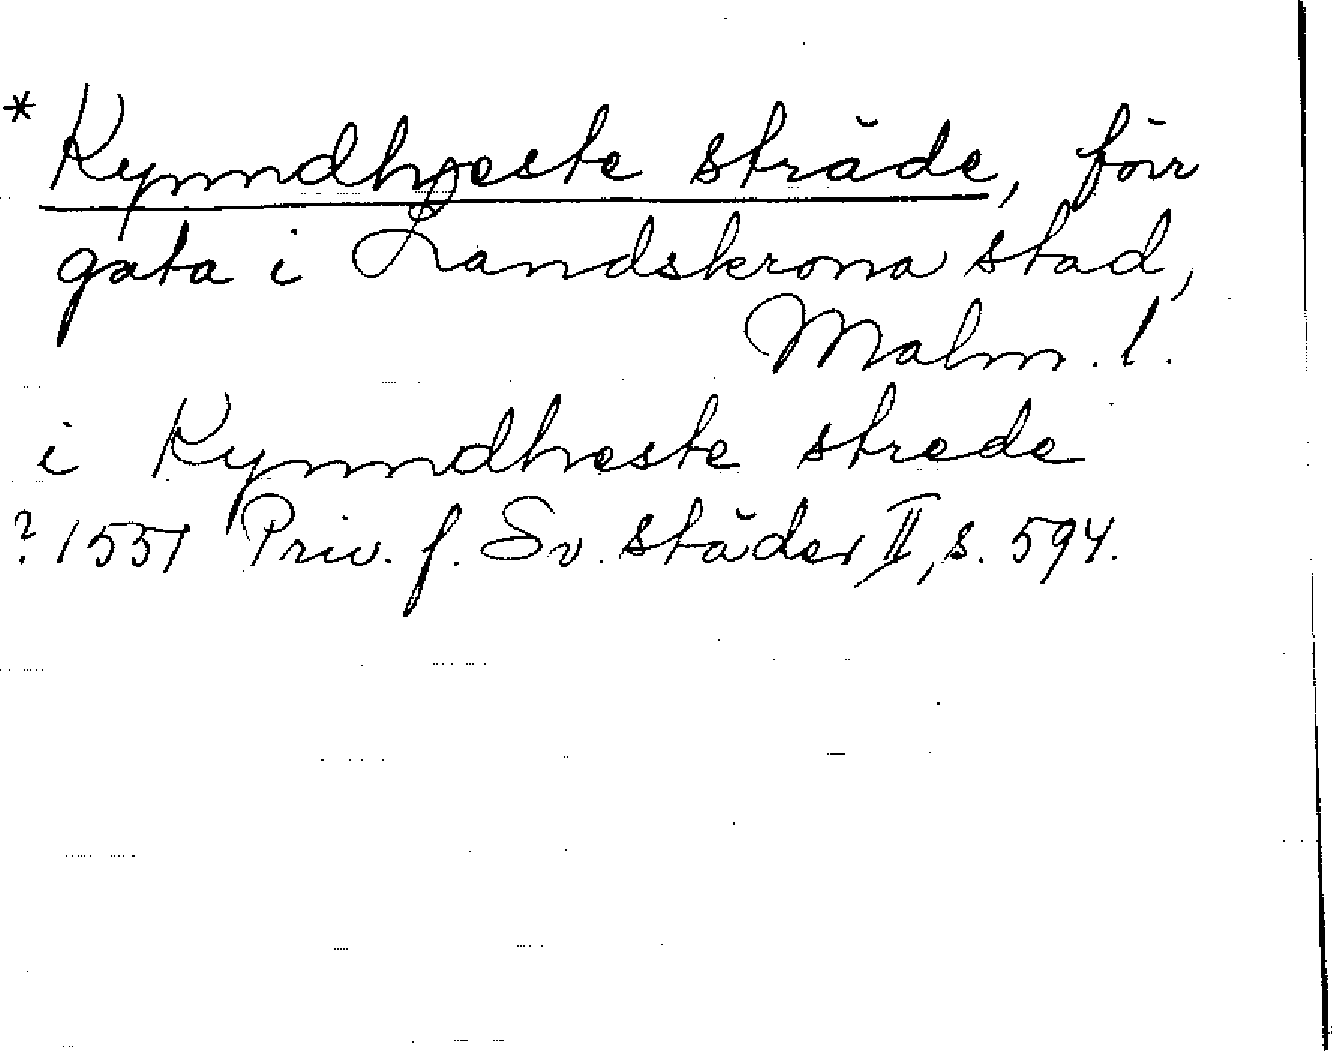 * Kynndhæste sträde, förr
gata i Landskrona stad,
Malm. l.
i Kynndheste strede
? 1557 Priv. f. Sv. städer II, s. 594.